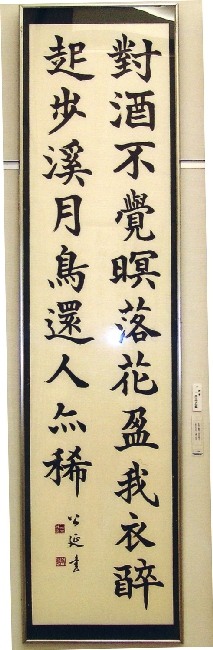 對酒不覺暝落花盈我衣醉
起步溪月鳥還人亦稀
公延書